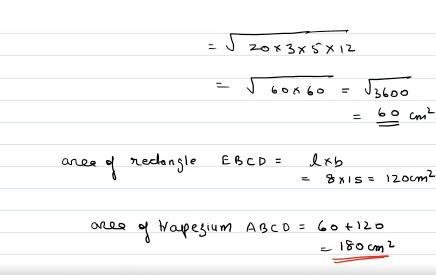 = √20×3×5×12
= √60×60 = √3600
= 60 cm²
area of rectangle EBCD = l×b
= 8×15 = 120cm²
area of trapezium ABCD = 60+120
= 180cm²